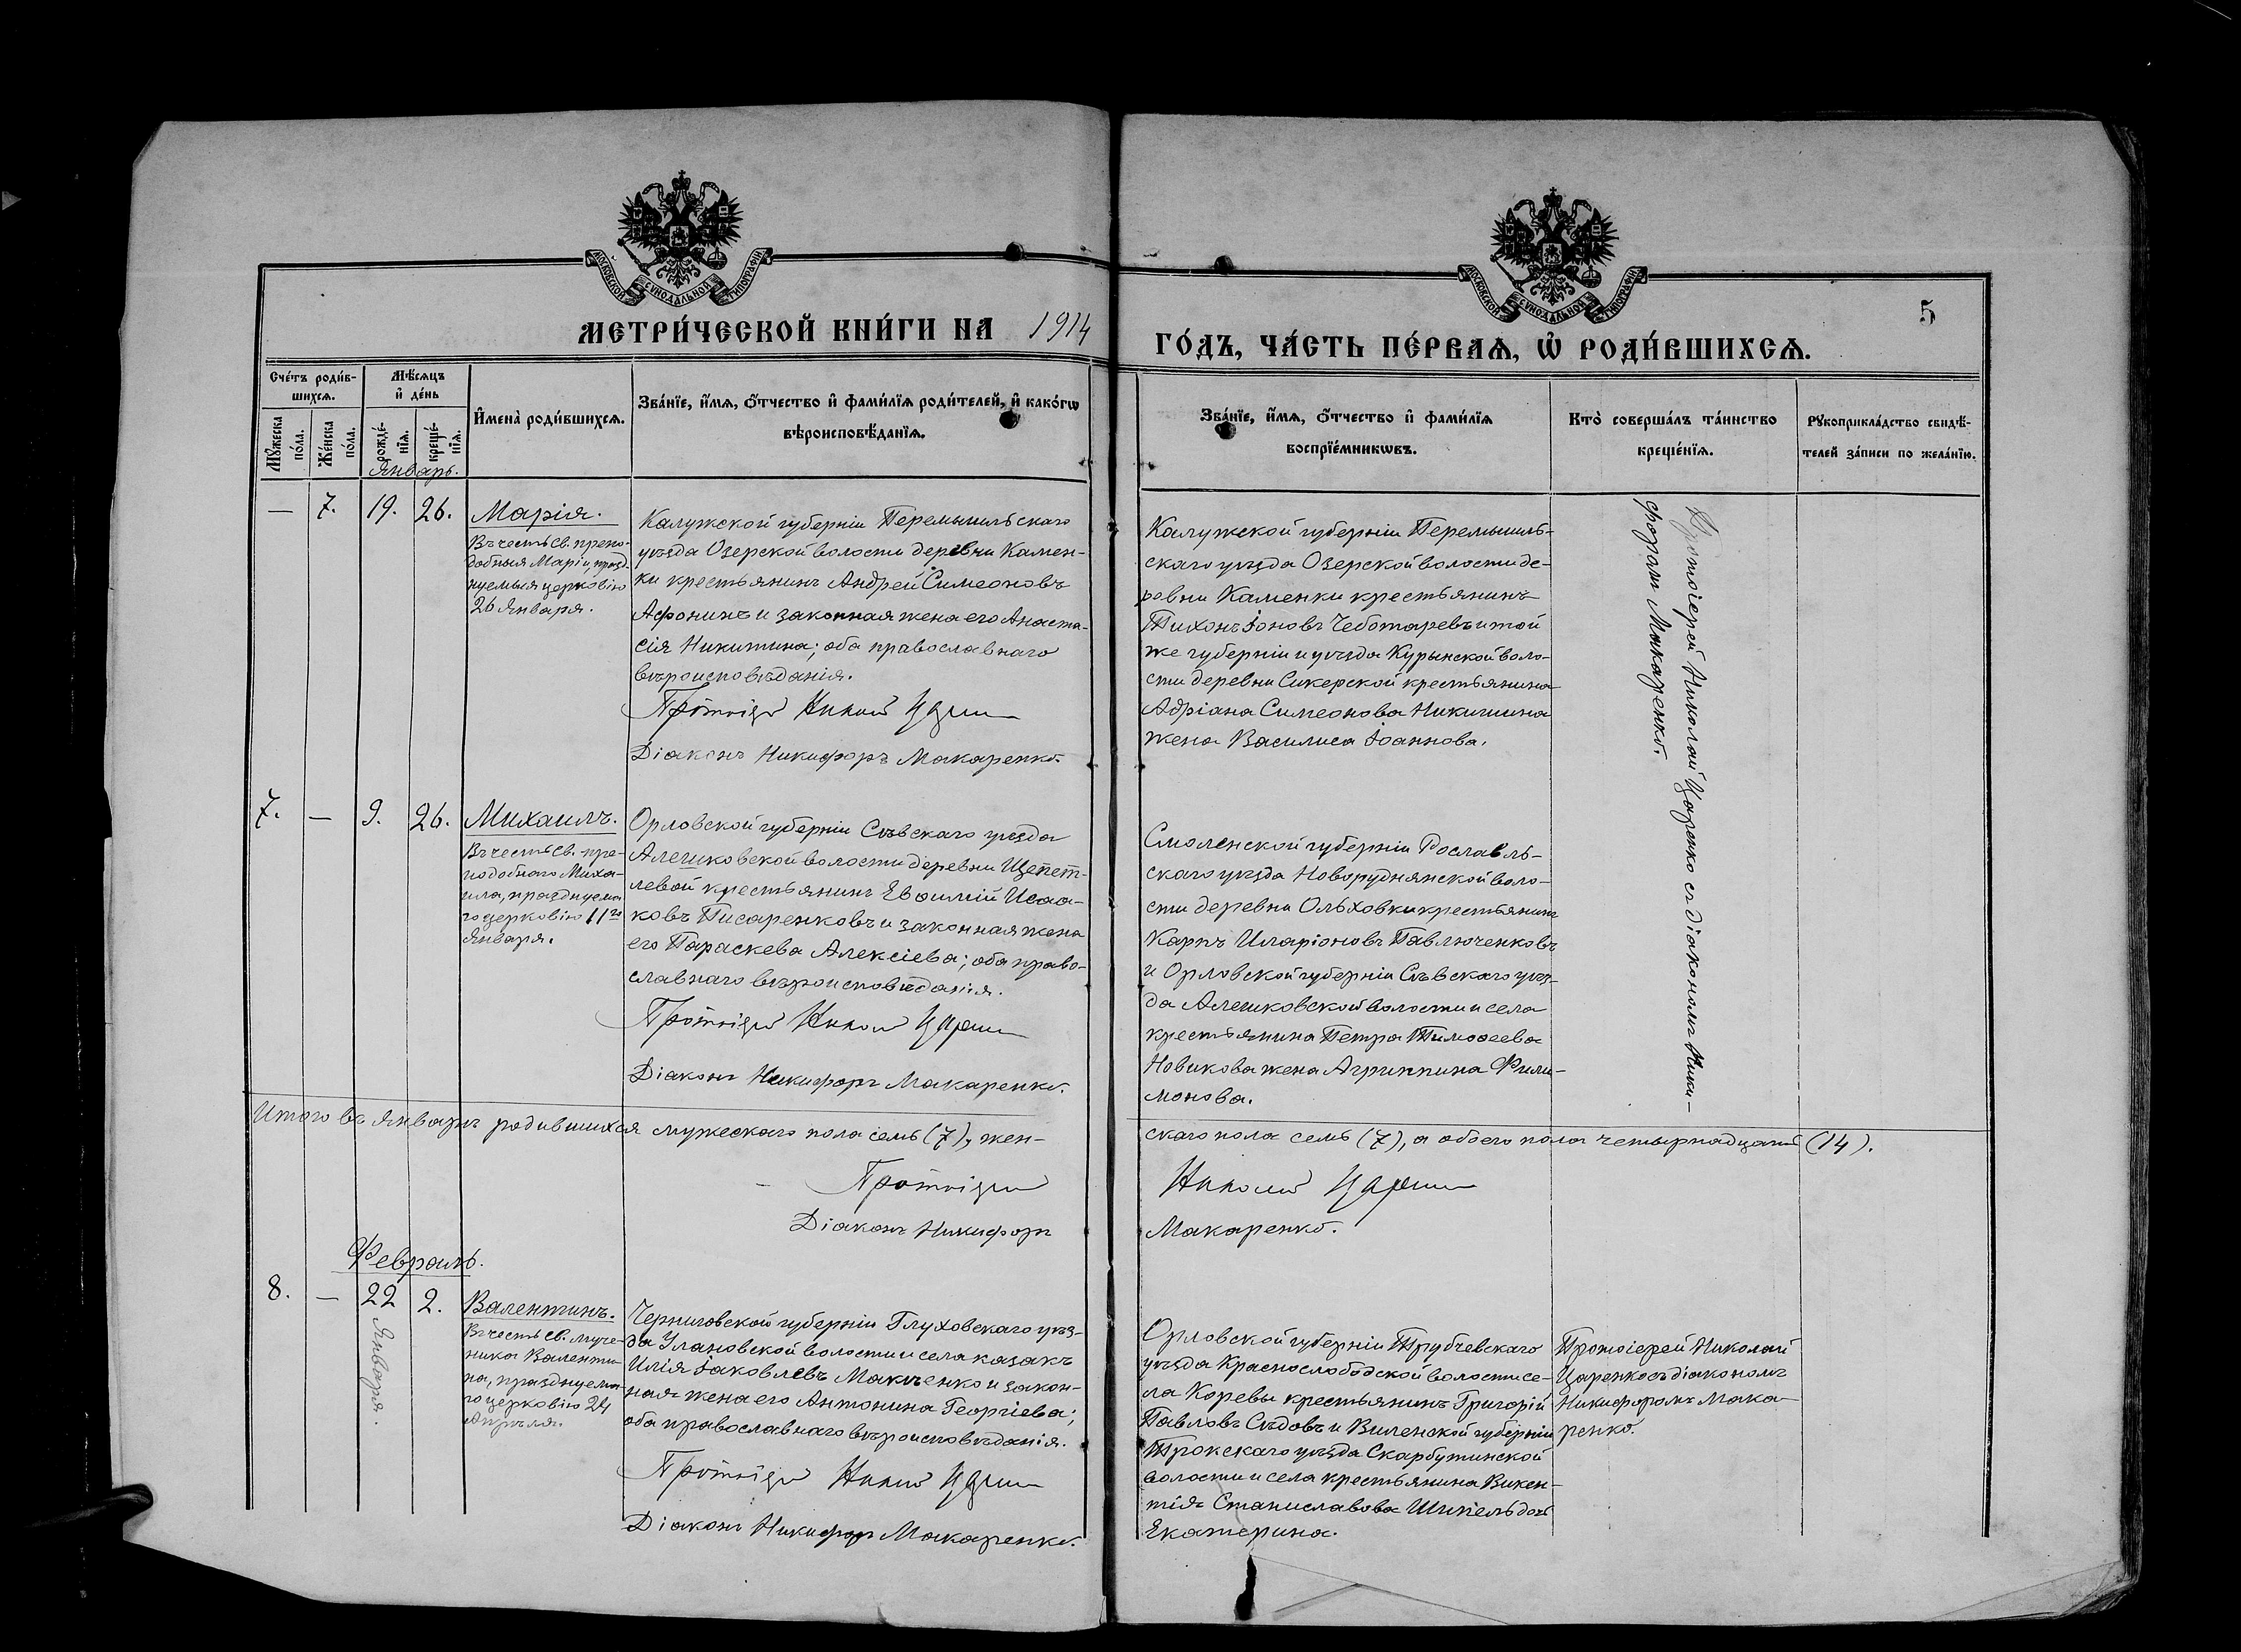 МОСКОВСКОЙ СѴНОДАЛЬНОЙ ТИПОГРАФІИ
МОСКОВСКОЙ СѴНОДАЛЬНОЙ ТИПОГРАФІИ
5
МЕТРИ́ЧЕСКОЙ КНИ́ГИ НА 1914
ГО́ДЪ, ЧА́СТЬ ПЕ́РВАѦ, Ѡ҆ РОДИ́ВШИХСѦ.
Сче́тъ роди́в-
шихсѧ.
Мѣ́сѧцъ
и҆ де́нь
Мꙋ́жеска
по́ла.
Же́нска
по́ла.
рожде́-
нїѧ.
креще́-
нїѧ.
И҆мена̀ роди́вшихсѧ.
Зва́нїе, и҆́мѧ, ѻ҆́тчество и҆ фами́лїѧ роди́телей, и҆ како́гѡ
вѣроисповѣ́данїѧ.
Зва́нїе, и҆́мѧ, ѻ҆́тчество и҆ фами́лїѧ
воспрїе́мникѡвъ.
Кто̀ соверша́лъ та́инство
креще́нїѧ.
Рꙋкоприкла́дство свидѣ́-
телей за́писи по жела́нїю.
Январь.
— 7. 19. 26.
Марія.
Въ честь св. препо-
добныя Маріи, празд-
нуемыя церковію
26 Января.
Калужской губерніи Перемышльскаго
уѣзда Озерской волости деревни Камен-
ки крестьянинъ Андрей Симеоновъ
Афонинъ и законная жена его Анаста-
сія Никитина; оба православнаго
вѣроисповѣданія.
Протоіерей Николай Царенко
Діаконъ Никифоръ Макаренко.
Калужской губерніи Перемышль-
скаго уѣзда Озерской волости де-
ревни Каменки крестьянинъ
Тихонъ Іоновъ Чеботаревъ и той
же губерніи и уѣзда Курынской воло-
сти деревни Сикерской крестьянина
Адріана Симеонова Никишина
жена Василиса Іоаннова.
Протоіерей Николай Царенко съ діакономъ Ники-
форомъ Макаренко.
7. — 9. 26.
Михаилъ.
Въ честь св. пре-
подобнаго Миха-
ила, празднуема-
го церковію 11го
Января.
Орловской губерніи Сѣвскаго уѣзда
Алешковской волости деревни Щепет-
левой крестьянинъ Евѳимій Исаа-
ковъ Писаренковъ и законная жена
его Параскева Алексіева; оба право-
славнаго вѣроисповѣданія.
Протоіерей Николай Царенко
Діаконъ Никифоръ Макаренко.
Смоленской губерніи Рославль-
скаго уѣзда Новоруднянской воло-
сти деревни Ольховки крестьянинъ
Карпъ Иларіоновъ Павлюченковъ
и Орловской губерніи Сѣвскаго уѣз-
да Алешковской волости и села
крестьянина Петра Тимоѳеева
Новикова жена Агриппина Фили-
монова.
Итого въ Январѣ родившихся мужескаго пола семь (7), жен-
скаго пола семь (7), а обоего пола четырнадцать (14).
Протоіерей Николай Царенко
Діаконъ Никифоръ Макаренко.
Февраль.
8. — 22 2.
Января.
Валентинъ.
Въ честь св. муче-
ника Валенти-
на, празднуема-
го церковію 24
Апрѣля.
Черниговской губерніи Глуховскаго уѣз-
да Улановской волости и села казакъ
Илія Іаковлевъ Макченко и закон-
ная жена его Антонина Георгіева;
оба православнаго вѣроисповѣданія.
Протоіерей Николай Царенко
Діаконъ Никифоръ Макаренко.
Орловской губерніи Трубчевскаго
уѣзда Краснослободской волости се-
ла Коревы крестьянинъ Григорій
Павловъ Сѣдовъ и Виленской губерніи
Трокскаго уѣзда Скарбутинской
волости и села крестьянина Викен-
тія Станиславова Шипель дочь
Екатерина.
Протоіерей Николай
Царенко съ діакономъ
Никифоромъ Мака-
ренко.